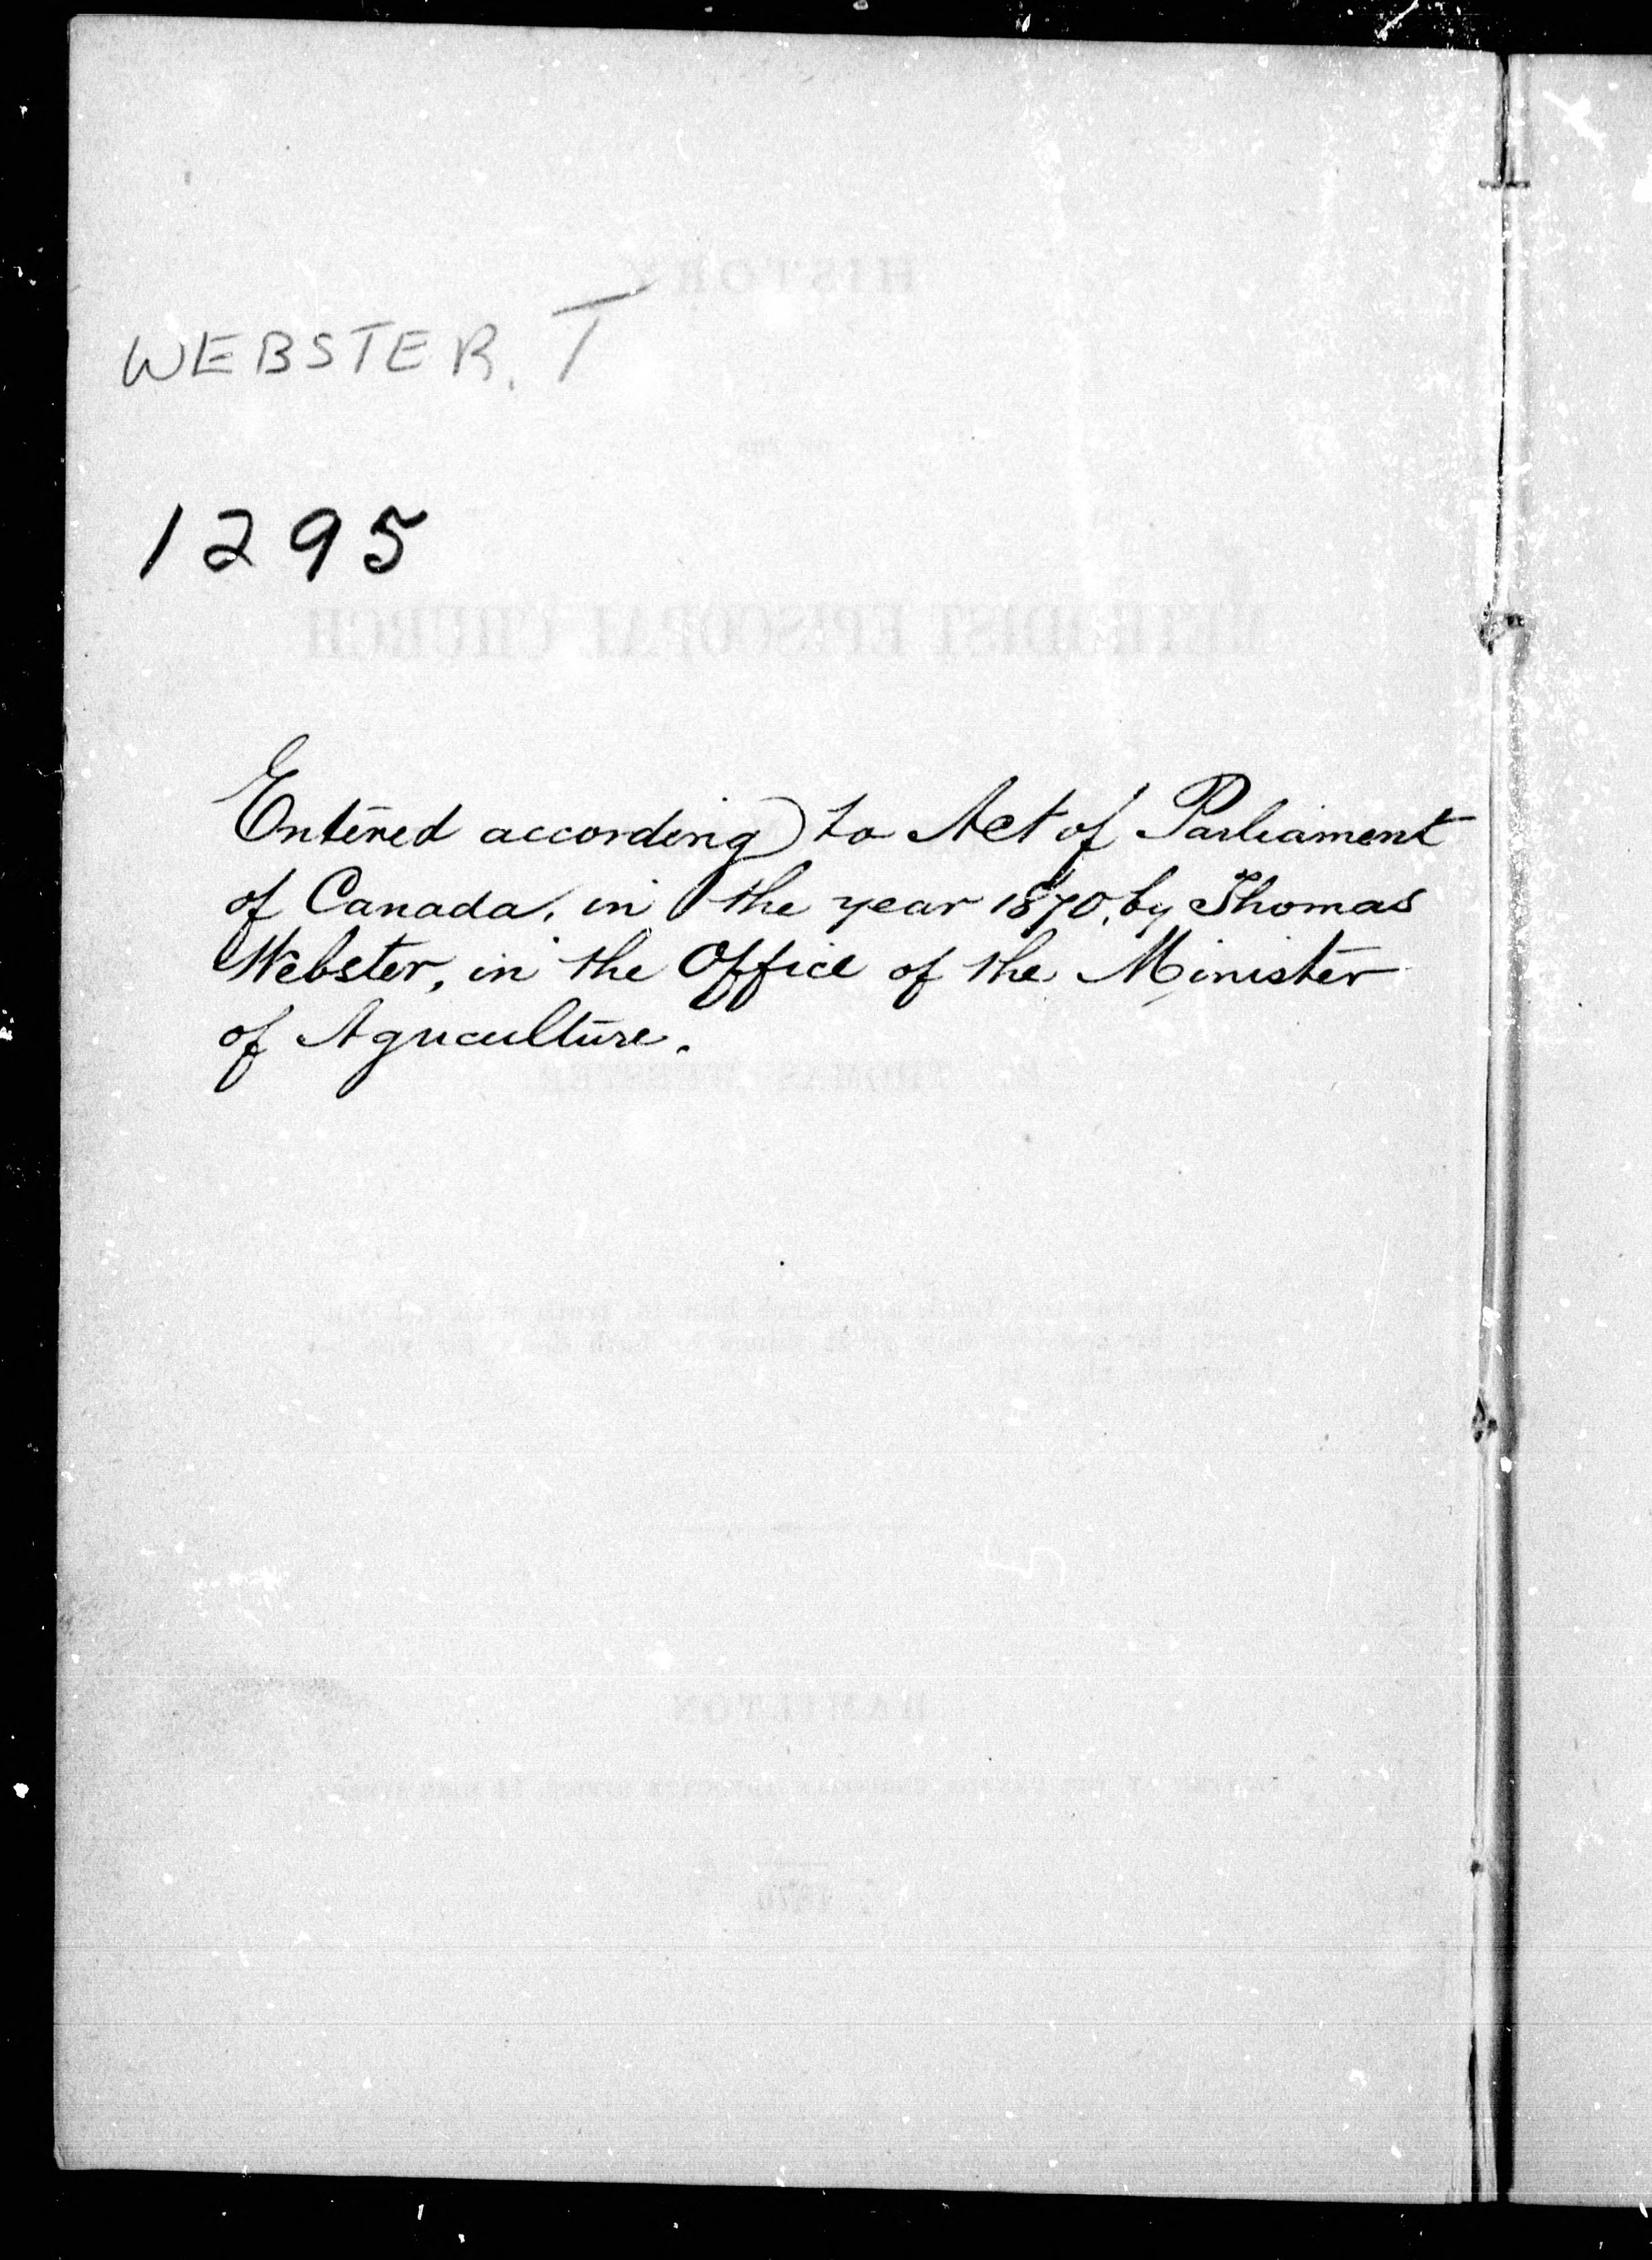 WEBSTER. T
1295
Entered according to Act of Parliament
of Canada, in the year 1870, by Thomas
Webster, in the Office of the Minister
of Agriculture.